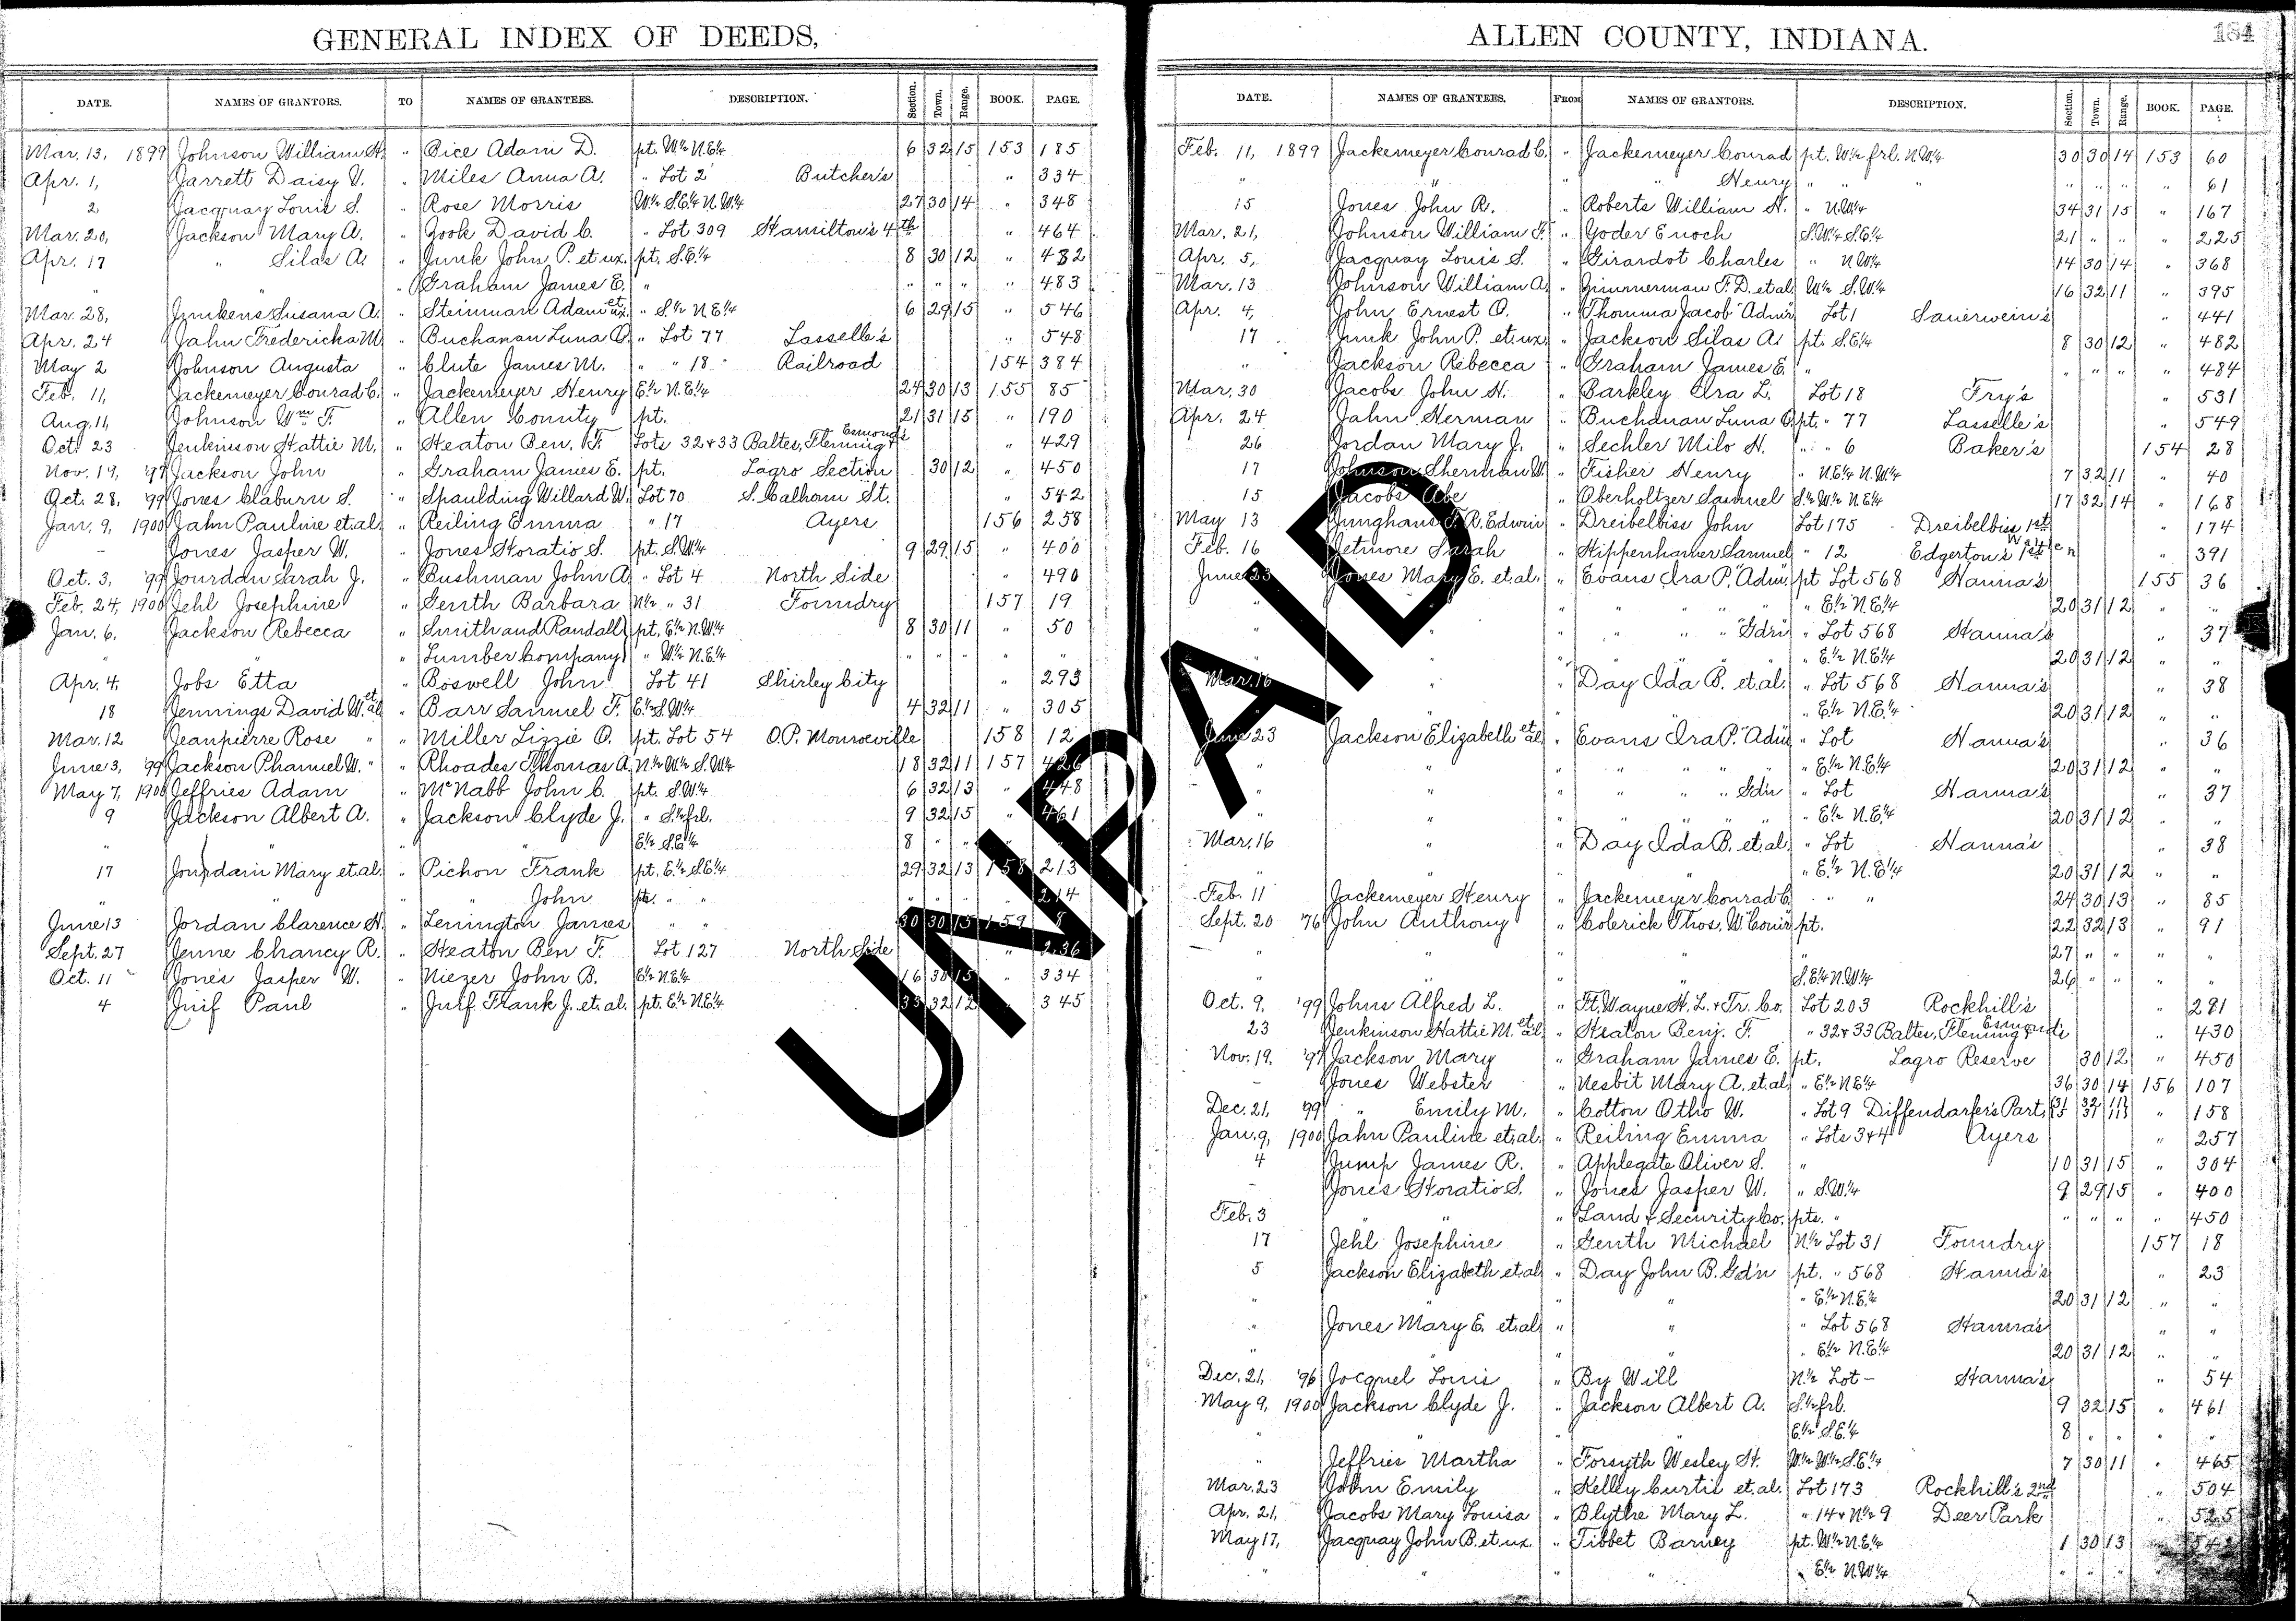 GENERAL INDEX OF DEEDS,
DATE. NAMES OF GRANTORS. TO NAMES OF GRANTEES. DESCRIPTION. Section. Town. Range. BOOK. PAGE.
Mar. 13, 1899 Johnson William H. " Bice Adam D. pt. W½ N.E¼ 6 32 15 153 185
Apr. 1, Jarrett Daisy V. " Miles Anna A. " Lot 2 Butcher's " 334
2 Jacquay Louis S. " Rose Morris W½ S.E¼ N.W¼ 27 30 14 " 348
Mar. 20, Jackson Mary A. " Zook David C. " Lot 309 Hamilton's 4th " 464
Apr. 17 " Silas A. " Junk John P. et ux. pt. S.E¼ 8 30 12 " 482
" " " Graham James E. " " " " " 483
Mar. 28, Junkens Susana A. " Steinman Adam et ux. " S.½ N.E¼ 6 29 15 " 546
Apr. 24 Jahn Fredericka M. " Buchanan Luna O. " Lot 77 Lasselle's " 548
May 2 Johnson Augusta " Clute James M. " " 18 Railroad 154 384
Feb. 11, Jackemeyer Conrad C. " Jackemeyer Henry E½ N.E¼ 24 30 13 155 85
Aug. 11, Johnson Wm F. " Allen County pt. 21 31 15 " 190
Oct. 23 Jenkinson Hattie M. " Heaton Ben. F. Lots 32 & 33 Baltes, Fleming & Esmond's " 429
Nov. 19, '97 Jackson John " Graham James E. pt. Lagro Section 30 12 " 450
Oct. 28, '99 Jones Claburn S. " Spaulding Willard W. Lot 70 S. Calhoun St. " 542
Jan. 9, 1900 Jahn Pauline et al. " Reiling Emma " 17 Ayers 156 258
– Jones Jasper W. " Jones Horatio S. pt. S.W¼ 9 29 15 " 400
Oct. 3, '99 Jourdan Sarah J. " Bushman John A. " Lot 4 North Side " 490
Feb. 24, 1900 Jehl Josephine " Genth Barbara N½ " 31 Foundry 157 19
Jan. 6, Jackson Rebecca " Smith and Randall pt. E½ N.W¼ 8 30 11 " 50
" " " Lumber Company " W½ N.E¼ " " " " "
Apr. 4, Jobs Etta " Boswell John Lot 41 Shirley City " 293
18 Jennings David W. et al " Barr Samuel F. E½ S.W¼ 4 32 11 " 305
Mar. 12 Jeanpierre Rose " " Miller Lizzie O. pt. Lot 54 O.P. Monroeville 158 12
June 3, '99 Jackson Phanuel W. " " Rhoades Thomas A. N½ W½ S.W¼ 18 32 11 157 426
May 7, 1900 Jeffries Adam " McNabb John C. pt. S.W¼ 6 32 13 " 448
9 Jackson Albert A. " Jackson Clyde J. " S.½ frl. 9 32 15 " 461
" " " " E½ S.E¼ 8 " " " "
17 Jourdain Mary et al. " Pichon Frank pt. E½ S.E¼ 29 32 13 158 213
" " " " John pts. " " " " " " 214
June 13 Jordan Clarence H. " Lenington James " " 30 30 15 159 8
Sept. 27 Jenne Chancy R. " Heaton Ben F. Lot 127 North Side " 236
Oct. 11 Jones Jasper W. " Niezer John B. E½ N.E¼ 16 30 15 " 334
4 Juif Paul " Juif Frank J. et. al. pt. E½ N.E¼ 33 32 12 " 345
ALLEN COUNTY, INDIANA.
184
DATE. NAMES OF GRANTEES. FROM NAMES OF GRANTORS. DESCRIPTION. Section. Town. Range. BOOK. PAGE.
Feb. 11, 1899 Jackemeyer Conrad C. " Jackemeyer Conrad pt. W½ frl. N.W¼ 30 30 14 153 60
" " " " Henry " " " " " " " 61
15 Jones John R. " Roberts William H. " N.W¼ 34 31 15 " 167
Mar. 21, Johnson William F. " Yoder Enoch S.W¼ S.E¼ 21 " " " 225
Apr. 5, Jacquay Louis S. " Girardot Charles " N.W¼ 14 30 14 " 368
Mar. 13 Johnson William A. " Zimmerman F. D. et al. W½ S.W¼ 16 32 11 " 395
Apr. 4, John Ernest O. " Thomma Jacob "Admr Lot 1 Sauerwein's " 441
17 Junk John P. et ux. " Jackson Silas A. pt. S.E¼ 8 30 12 " 482
" Jackson Rebecca " Graham James E. " " " " " 484
Mar. 30 Jacobs John H. " Barkley Ira L. Lot 18 Fry's " 531
Apr. 24 Jahn Herman " Buchanan Luna O. pt. " 77 Lasselle's " 549
26 Jordan Mary J. " Sechler Milo H. " " 6 Baker's 154 28
17 Johnson Sherman W. " Fisher Henry " N.E¼ N.W¼ 7 32 11 " 40
15 Jacobs Abe " Oberholtzer Samuel S½ W½ N.E¼ 17 32 14 " 168
May 13 Junghans F. R. Edwin " Dreibelbiss John Lot 175 Dreibelbiss 1st " 174
Feb. 16 Jetmore Sarah " Hippenhamer Samuel " 12 Edgerton's 1st " 391
June 23 Jones Mary E. et al. " Evans Ira P. "Adm. pt Lot 568 Hanna's 155 36
" " " " " " E½ N.E¼ 20 31 12 " "
" " " " " "Gdn " Lot 568 Hanna's " 37
" " " " " " E½ N.E¼ 20 31 12 " "
Mar. 16 " " Day Ida B. et al. " Lot 568 Hanna's " 38
" " " " E½ N.E¼ 20 31 12 " "
June 23 Jackson Elizabeth et al. " Evans Ira P. "Adm " Lot Hanna's " 36
" " " " " " E½ N.E¼ 20 31 12 " "
" " " " " Gdn " Lot Hanna's " 37
" " " " " " E½ N.E¼ 20 31 12 " "
Mar. 16 " " Day Ida B. et. al. " Lot Hanna's " 38
" " " " E½ N.E¼ 20 31 12 " "
Feb. 11 Jackemeyer Henry " Jackemeyer Conrad C. " " 24 30 13 " 85
Sept. 20 '76 John Anthony " Colerick Thos. W. "Comr pt. 22 32 13 " 91
" " " " 27 " " " "
" " " " S.E¼ N.W¼ 26 " " " "
Oct. 9, '99 Johns Alfred L. " Ft. Wayne H. L. & Tr. Co. Lot 203 Rockhill's " 281
23 Jenkinson Hattie M. et al. " Heaton Benj. F. " 32 & 33 Baltes, Fleming & Esmond's " 430
Nov. 19, '97 Jackson Mary " Graham James E. pt. Lagro Reserve 30 12 " 450
– Jones Webster " Nesbit Mary A. et al. " E½ N.E¼ 36 30 14 156 107
Dec. 21, '99 " Emily M. " Cotton Otho W. " Lot 9 Diffendarfer's Part. " 158
Jan. 9, 1900 Jahn Pauline et al. " Reiling Emma " Lots 3 & 4 Ayers " 257
4 Jump James R. " Applegate Oliver S. " 10 31 15 " 304
– Jones Horatio S. " Jones Jasper W. " S.W¼ 9 29 15 " 400
Feb. 3 " " Land & Security Co. pts. " " " " " 450
17 Jehl Josephine " Genth Michael N½ Lot 31 Foundry 157 18
5 Jackson Elizabeth et al. " Day John B. Gd'n pt. " 568 Hanna's " 23
" " " " E½ N.E¼ 20 31 12 " "
" Jones Mary E. et al. " " " Lot 568 Hanna's " "
" " " " E½ N.E¼ 20 31 12 " "
Dec. 21, '96 Jocquel Louis " By Will N.½ Lot – Hanna's " 54
May 9, 1900 Jackson Clyde J. " Jackson Albert A. S.½ frl. 9 32 15 " 461
" " " " E½ S.E¼ 8 " " " "
" Jeffries Martha " Forsyth Wesley H. W½ W½ S.E¼ 7 30 11 " 465
Mar. 23 John Emily " Kelley Curtis et. al. Lot 173 Rockhill's 2nd " 504
Apr. 21, Jacobs Mary Louisa " Blythe Mary L. " 14 & N½ 9 Deer Park " 525
May 17, Jacquay John B. et ux. " Tibbet Barney pt. W½ N.E¼ 1 30 13
" " " " E½ N.W¼ " " "
UNPAID